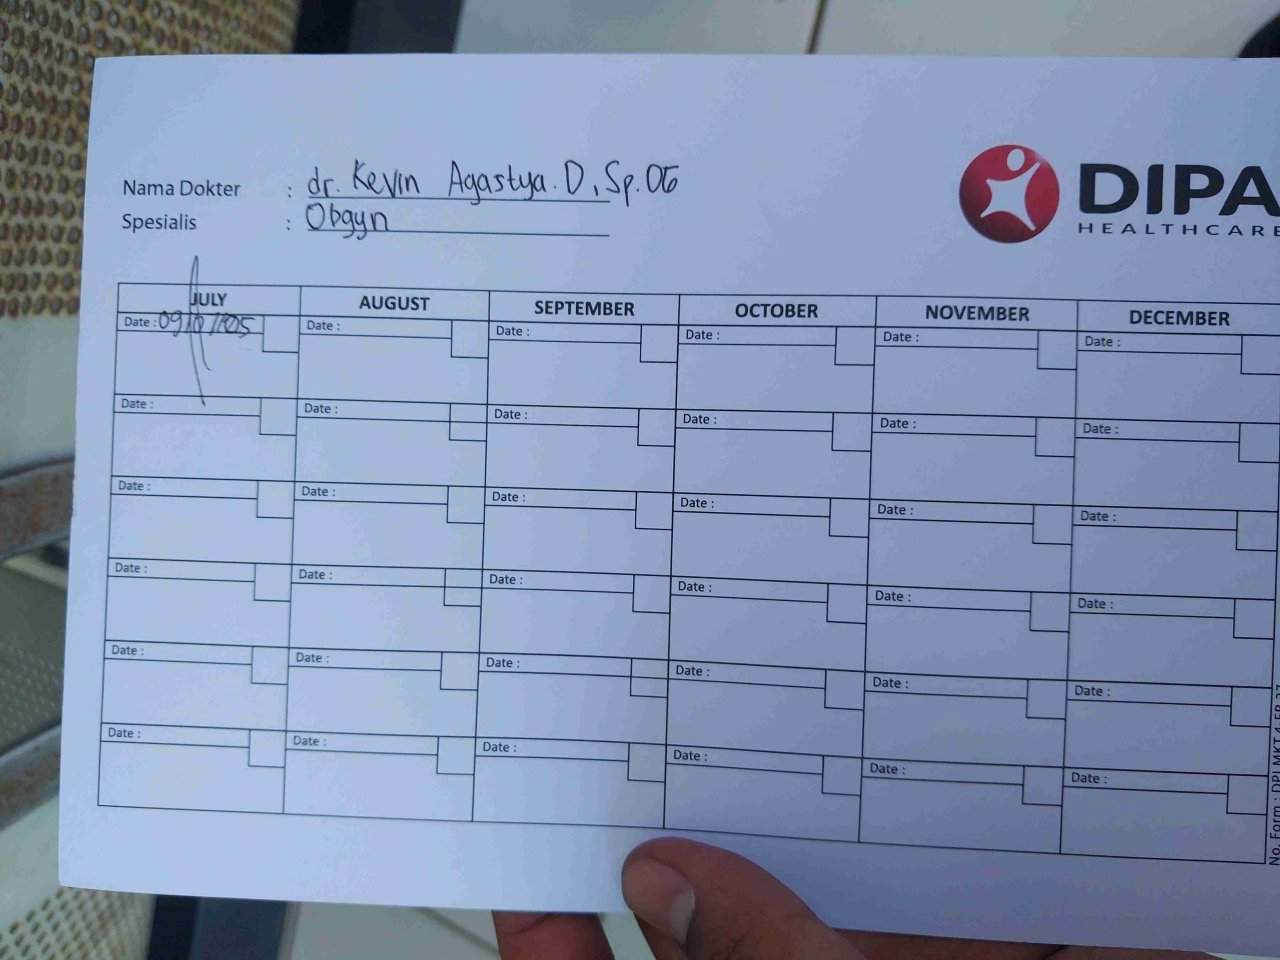 Nama Dokter : dr. Kevin Agastya. D, Sp. OG
Spesialis : Obgyn
DIPA
HEALTHCARE
JULY AUGUST SEPTEMBER OCTOBER NOVEMBER DECEMBER
Date : Date : Date : Date : Date : Date :
Date : Date : Date : Date : Date : Date :
Date : Date : Date : Date : Date : Date :
Date : Date : Date : Date : Date : Date :
Date : Date : Date : Date : Date : Date :
Date : Date : Date : Date : Date : Date :
No. Form :